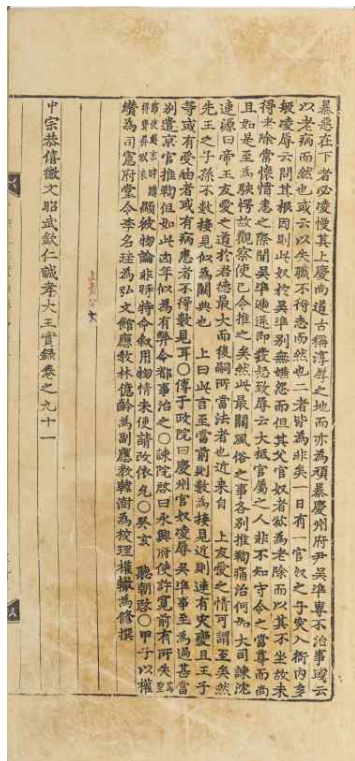 暴惡在下者必凌慢其上慶尚道古稱淳厚之地而亦爲頑暴慶州府尹吳準專不治事或云
以老病而然也或云以失職不得志而然也二者皆爲非矣一日有一官奴之子突入衙內多
般凌辱云問其根因則此奴於吳準別無嫌怨而但其父官奴者欲爲老除而以其不坐故未
得老除常懷憤恚之際聞吳準遞還即發怒致辱云大抵官屬之人非不知守令之當尊而尚
且如是至爲駭愕故觀察使已令推之矣然此最關風俗之事各別推鞫痛治何如大司諫沈
連源曰帝王友愛之道於君德最大而後嗣所當法者也近來自 上友愛之情可謂至矣然
先王之子孫不數接見似爲闕典也 上曰此言至當前則數爲接見近則連有灾變且王子
等或有受由者或有病患者不得數見耳○傳于政院曰慶州官奴凌辱吳準事至爲過甚當
別遣京官推鞫但如此凶年似爲有弊令都事治之○諫院啓曰永興府使許寬前有所失
顯被物論非時特命敍用物情未便請改依允○癸亥 聽朝啓○甲子以權
纘爲司憲府掌令李名珪爲弘文館應敎林億齡爲副應敎韓澍爲校理權轍爲修撰
中宗恭僖徽文昭武欽仁誠孝大王實錄卷之九十一